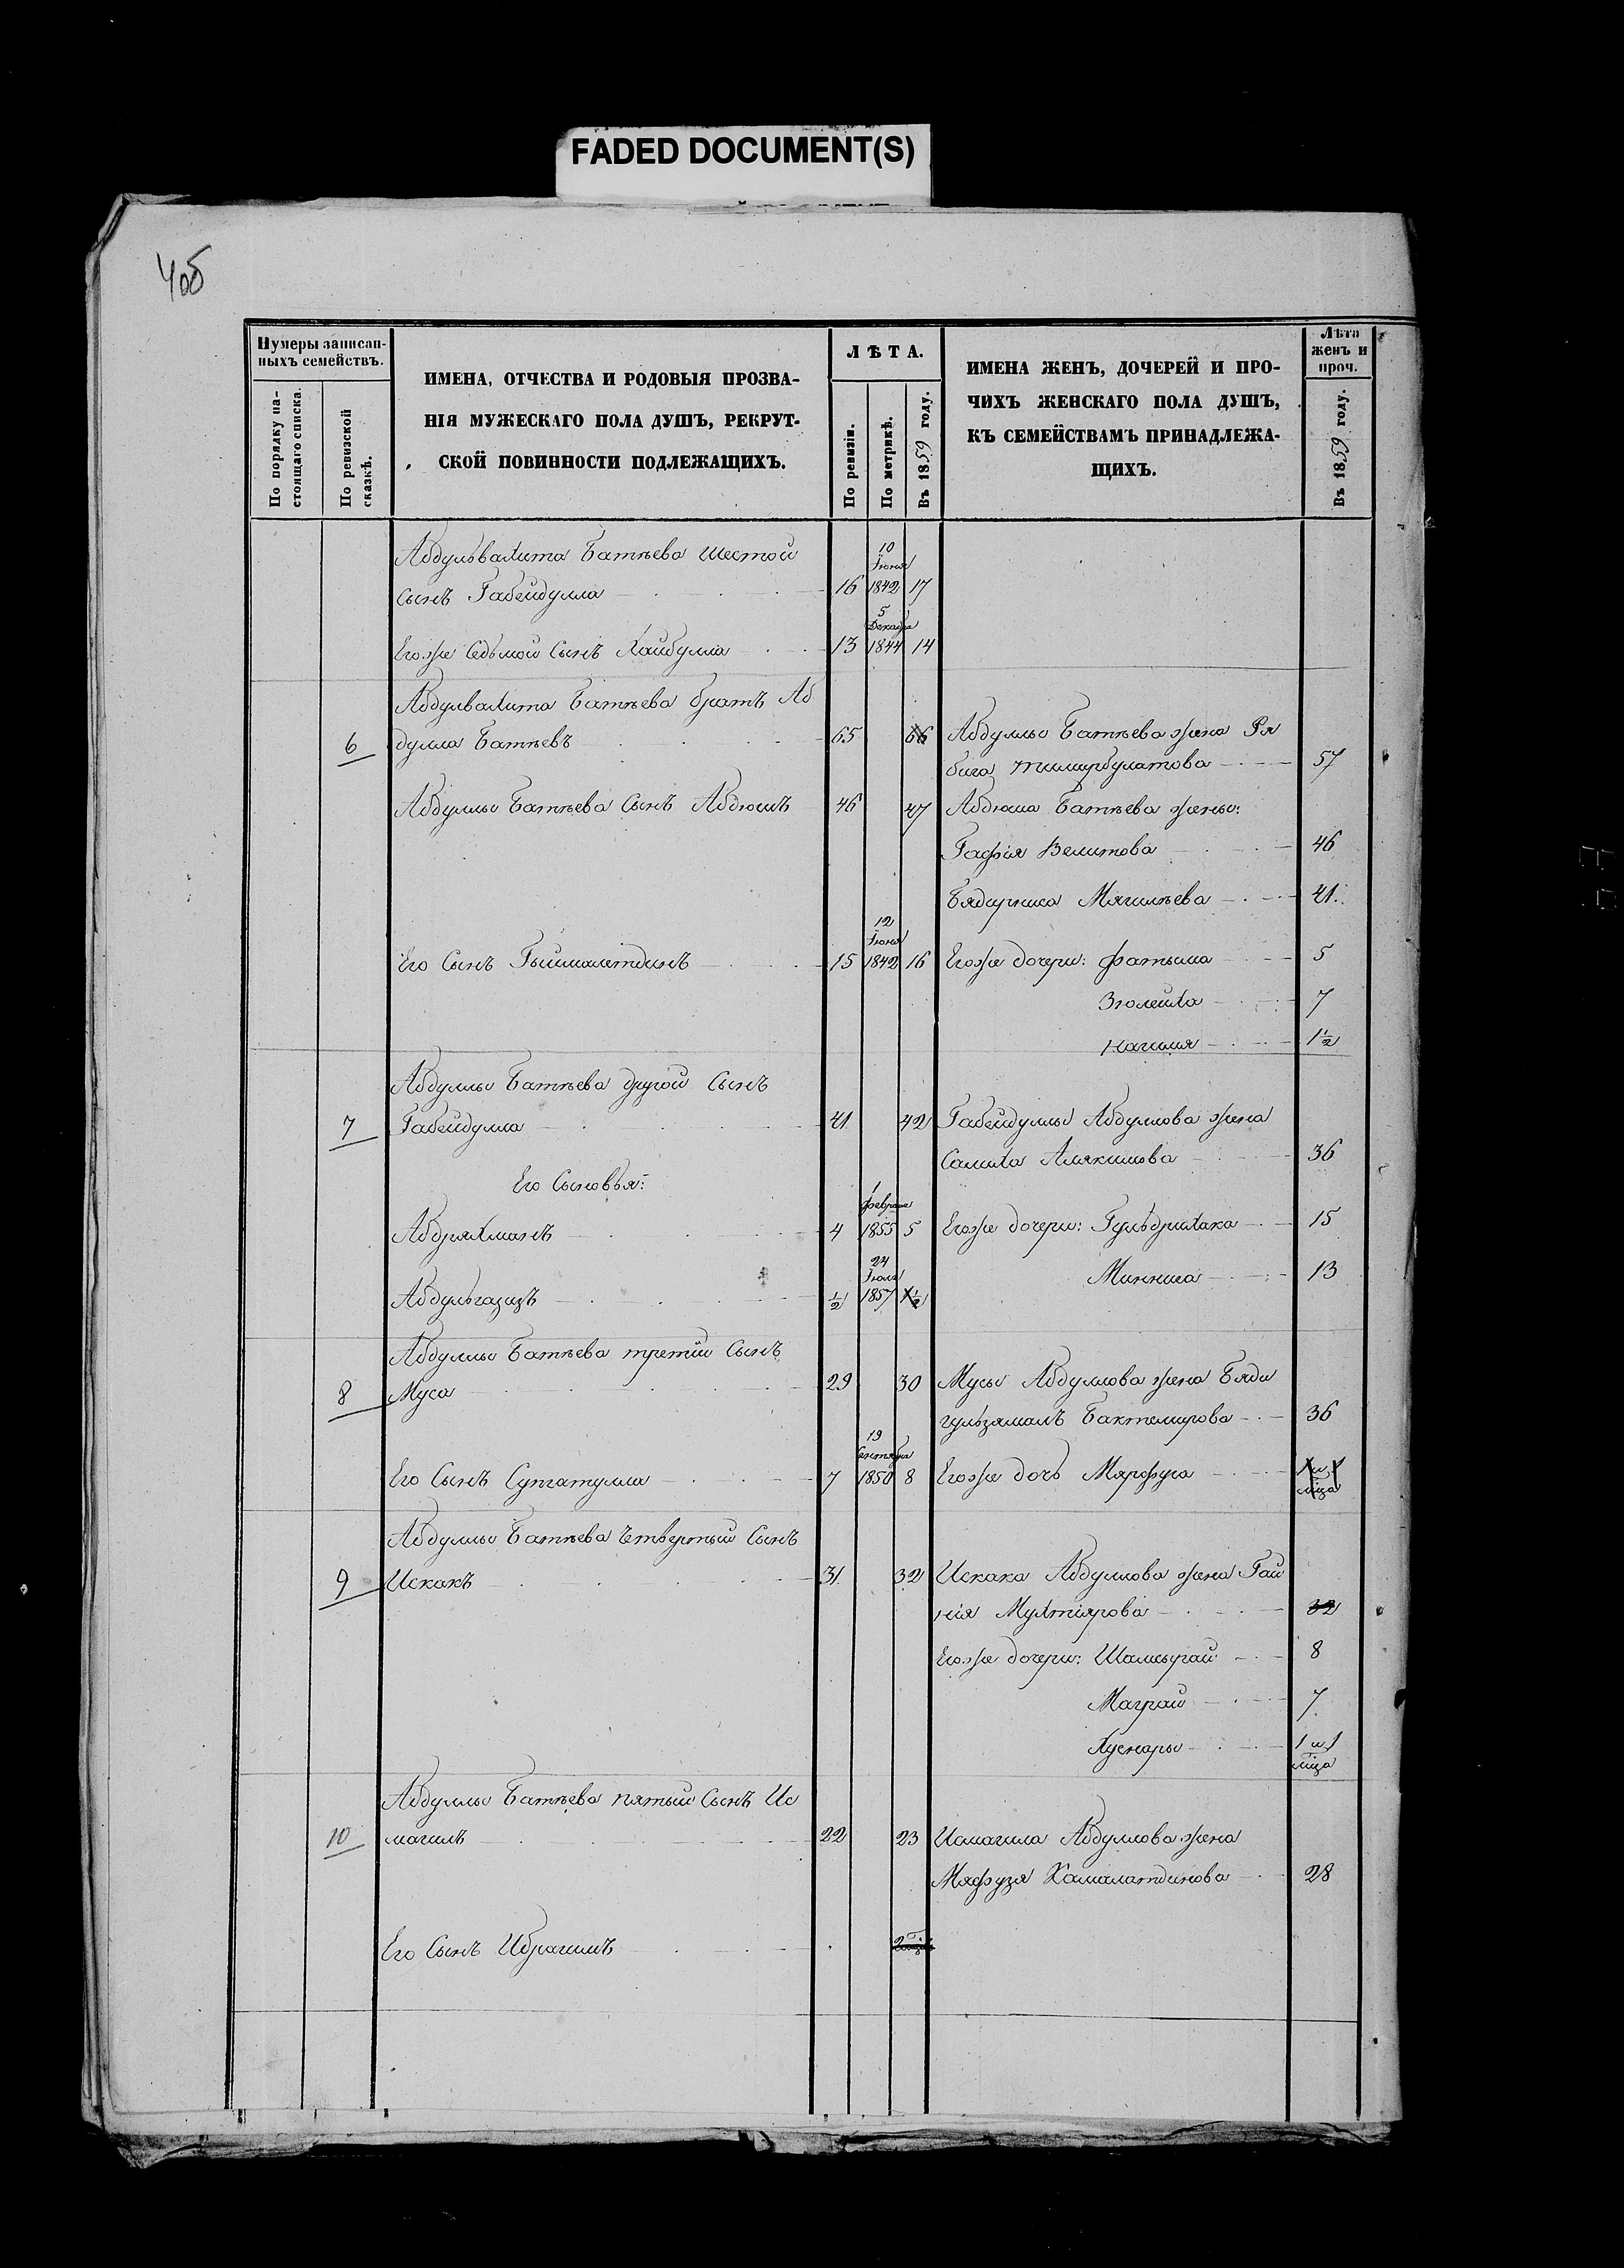 FADED DOCUMENT(S)
Нумеры записан-
ныхъ семействъ.
По порядку на-
стоящаго списка.
По ревизской
сказкѣ.
ИМЕНА, ОТЧЕСТВА И РОДОВЫЯ ПРОЗВА-
НІЯ МУЖЕСКАГО ПОЛА ДУШЪ, РЕКРУТ-
СКОЙ ПОВИННОСТИ ПОДЛЕЖАЩИХЪ.
ЛѢТА.
По ревизіи.
По метрикѣ.
Въ 1859 году.
ИМЕНА ЖЕНЪ, ДОЧЕРЕЙ И ПРО-
ЧИХЪ ЖЕНСКАГО ПОЛА ДУШЪ,
КЪ СЕМЕЙСТВАМЪ ПРИНАДЛЕЖА-
ЩИХЪ.
Лѣта
женъ и
проч.
Въ 1859 году.
Абдульвахита Батыева шестой
10
Іюня
сынъ Габейдулла 16 1842 17
5
Декабря
Егоже седьмой сынъ Хайбулла 13 1844 14
Абдулвахита Батыева братъ Аб
6 дулла Батыевъ 65 66 Абдуллы Батыева жена Ря
бига Тимирбулатова 57
Абдуллы Батыева сынъ Абдюшъ 46 47 Абдюша Батыева жены:
Гафія Велитова 46
Бядерниса 41.
12
Іюня
Его сынъ 15 1842 16 Егоже дочери: Фатыма 5
Зюлейха 7
Нагима 1½
Абдуллы Батыева другой сынъ
7 Габейдулла 41 42 Габейдуллы Абдуллова жена
Салиха Алякимова 36
Его сыновья:
1
Февраля
Абдряхманъ 4 1855 5 Егоже дочери: 15
24
Іюля
Минниса 13
Абдульгазизъ ½ 1857 1½
Абдуллы Батыева третій сынъ
8 Муса 29 30 Мусы Абдуллова жена Бяди
гульзямалъ Бактемирова 36
19
Сентября
Его сынъ Сунгатулла 7 1850 8 Егоже дочь Мярфуга
Абдуллы Батыева четвертый сынъ
9 Искакъ 31 32 Искака Абдуллова жена Гай
нія Мухтіярова 32
Егоже дочери: 8
Маграй 7
Хуснары 1 и 1
мѣца
Абдуллы Батыева пятый сынъ Ис
10 магилъ 22 23 Исмагила Абдуллова жена
Мяфузя Камалатдинова 28
Его сынъ Ибрагимъ